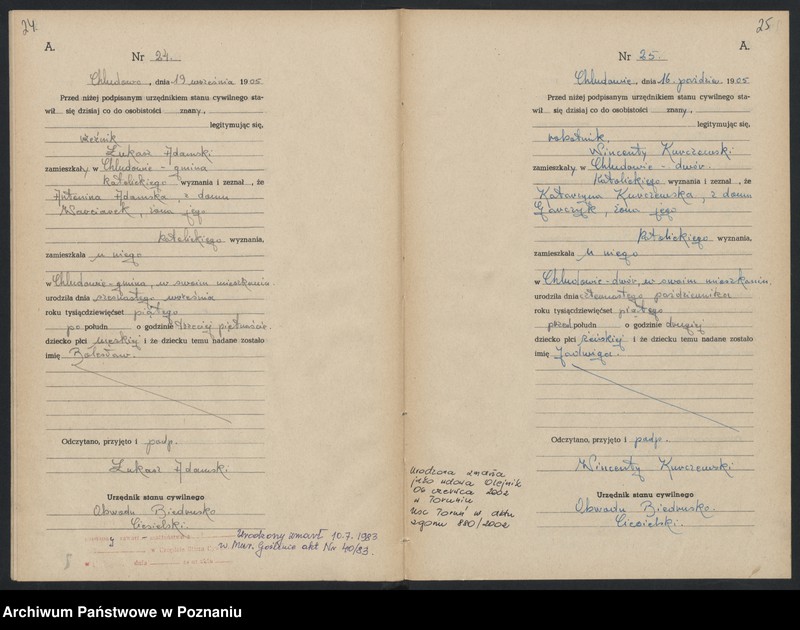 24.
A.
Nr 24.
Chludowo, dnia 19 września 1905
Przed niżej podpisanym urzędnikiem stanu cywilnego sta-
wił się dzisiaj co do osobistości znany,
legitymując się,
woźnik
Łukasz Adamski
zamieszkały w Chludowie - gmina
katolickiego wyznania i zeznał, że
Antonina Adamska, z domu
Marciniak, żona jego
katolickiego wyznania,
zamieszkała u niego
w Chludowie-gmina, w swoim mieszkaniu
urodziła dnia szesnastego września
roku tysiącdziewięćset piątego
po połudn o godzinie trzeciej
dziecko płci męskiej i że dziecku temu nadane zostało
imię Bolesław.
Odczytano, przyjęto i podp.
Łukasz Adamski
Urzędnik stanu cywilnego
Obwodu Biedrusko
Ciesielski.
Urodzony zmarł 10.7.1983
w Mur. Goślinie akt Nr 40/83.
25
A.
Nr 25.
Chludowie, dnia 16 paździer. 1905
Przed niżej podpisanym urzędnikiem stanu cywilnego sta-
wił się dzisiaj co do osobistości znany,
legitymując się,
robotnik
Wincenty Kurczewski
zamieszkały w Chludowie - dwór.
katolickiego wyznania i zeznał, że
Katarzyna Kurczewska, z domu
żona jego
katolickiego wyznania,
zamieszkała u niego
w Chludowie-dwór, w swoim mieszkaniu
urodziła dnia czternastego października
roku tysiącdziewięćset piątego
przed połudn o godzinie drugiej
dziecko płci żeńskiej i że dziecku temu nadane zostało
imię Jadwiga.
Odczytano, przyjęto i podp.
Wincenty Kurczewski
Urzędnik stanu cywilnego
Obwodu Biedrusko
Ciesielski.
Urodzona zmarła
jako wdowa Olejnik
06 czerwca 2002
w Toruniu
USC Toruń nr aktu
zgonu 880/2002
Archiwum Państwowe w Poznaniu